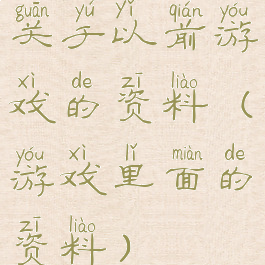 guān yú yǐ qián yóu
关于以前游
xì de zī liào
戏的资料（
yóu xì lǐ miàn de
游戏里面的
zī liào
资料）